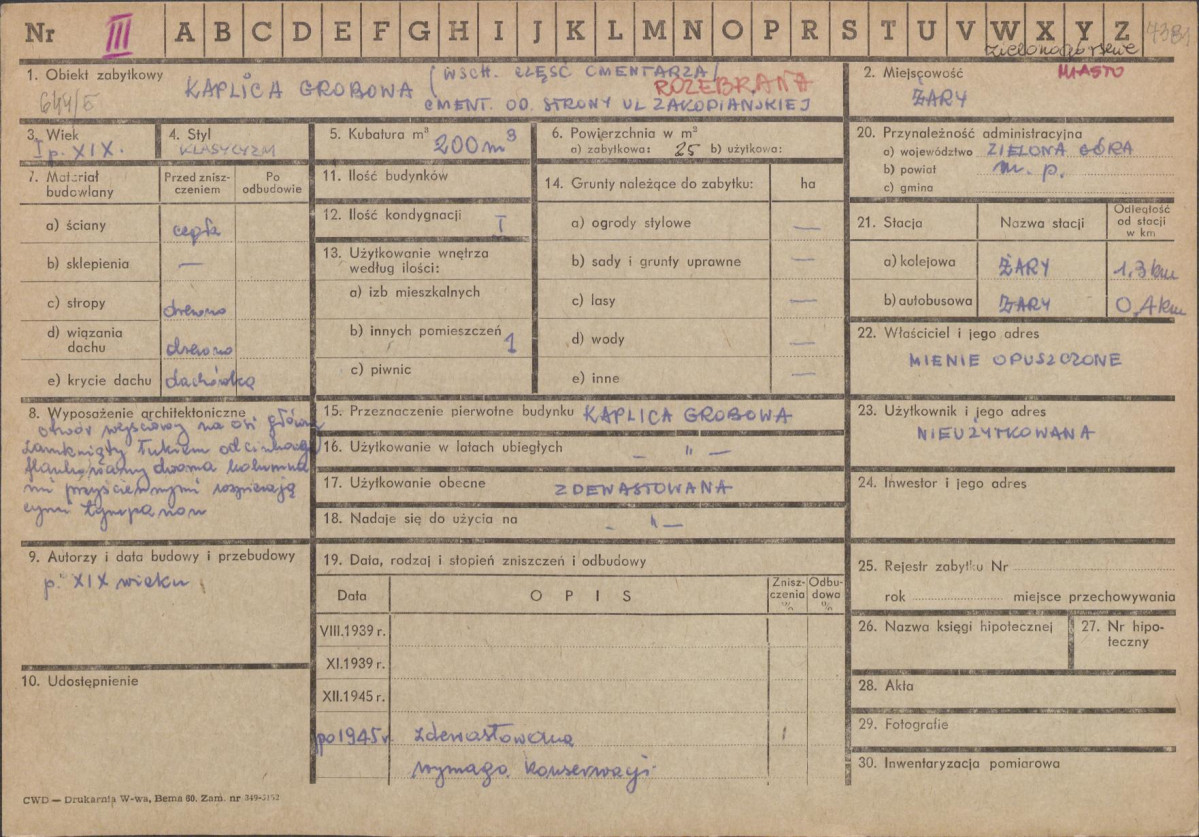 Nr III A B C D E F G H I J K L M N O P R S T U V W X Y Z
zielonogórskie
1. Obiekt zabytkowy
644/5
KAPLICA GROBOWA (WSCH. CZĘŚĆ CMENTARZA/
ROZEBRANA
CMENT. OD. STRONY UL ZAKOPIAŃSKIEJ
2. Miejscowość MIASTO
ŻARY
3. Wiek
I p. XIX.
4. Styl
KLASYCYZM
5. Kubatura m³ 200 m³
6. Powierzchnia w m²
a) zabytkowa: 25 b) użytkowa:
7. Materiał budowlany
Przed znisz-
czeniem
Po
odbudowie
a) ściany cegła
b) sklepienia —
c) stropy drewno
d) wiązania
dachu drewno
e) krycie dachu dachówką
8. Wyposażenie architektoniczne
otwór wejściowy na osi główne
zamknięty łukiem odcinkowy
flankowany dwoma kolumna
mi przyściennymi wspierają
cymi tympanon
9. Autorzy i data budowy i przebudowy
p. XIX wieku
10. Udostępnienie
11. Ilość budynków
12. Ilość kondygnacji I
13. Użytkowanie wnętrza
według ilości:
a) izb mieszkalnych
b) innych pomieszczeń 1
c) piwnic
14. Grunty należące do zabytku: ha
a) ogrody stylowe —
b) sady i grunty uprawne —
c) lasy —
d) wody —
e) inne —
15. Przeznaczenie pierwotne budynku KAPLICA GROBOWA
16. Użytkowanie w latach ubiegłych — " —
17. Użytkowanie obecne ZDEWASTOWANA
18. Nadaje się do użycia na - " —
19. Data, rodzaj i stopień zniszczeń i odbudowy
Data
OPIS
Znisz-
czenia
%
Odbu-
dowa
%
VIII.1939 r.
XI.1939 r.
XII.1945 r.
po 1945 r zdewastowana
wymaga konserwacji
20. Przynależność administracyjna
a) województwo ZIELONA GÓRA
b) powiat m. p.
c) gmina
21. Stacja
Nazwa stacji
Odległość
od stacji
w km
a) kolejowa ŻARY 1.3 km
b) autobusowa ŻARY 0,4 km
22. Właściciel i jego adres
MIENIE OPUSZCZONE
23. Użytkownik i jego adres
NIEUŻYTKOWANA
24. Inwestor i jego adres
25. Rejestr zabytku Nr
rok miejsce przechowywania
26. Nazwa księgi hipotecznej
27. Nr hipo-
teczny
28. Akta
29. Fotografie
30. Inwentaryzacja pomiarowa
CWD — Drukarnia W-wa, Bema 60. Zam. nr